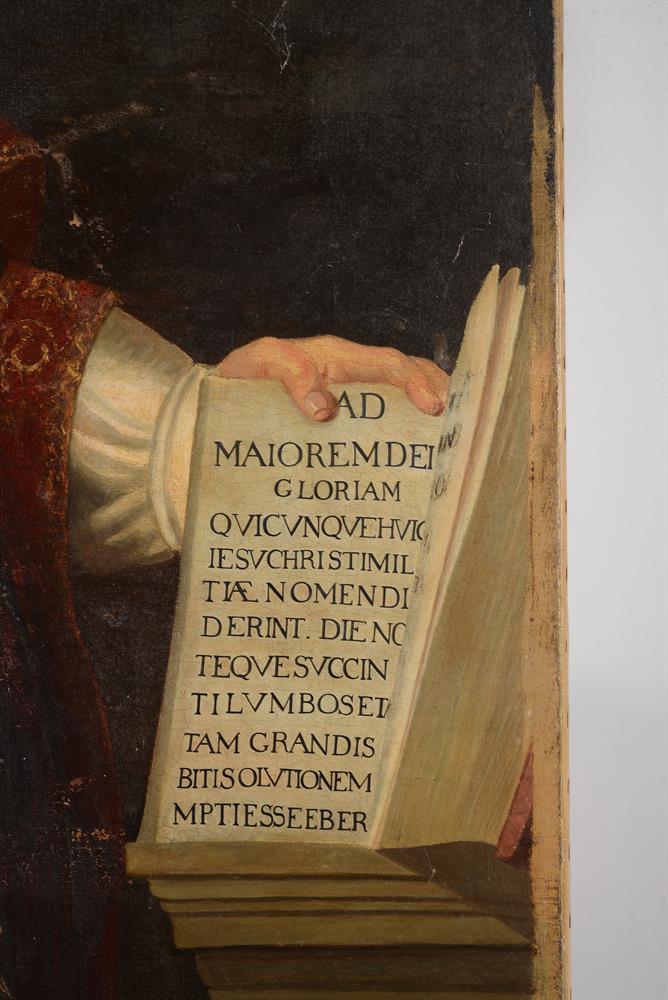 AD
MAIOREM DEI
GLORIAM
QVICVNQVE HVIC
IESV CHRISTI MIL
TIÆ NOMEN DI
DERINT. DIE NO
TEQVE SVCCIN
TI LVMBOS ET
TAM GRANDIS
BITI SOLVTIONEM
MPTI ESSE EBER